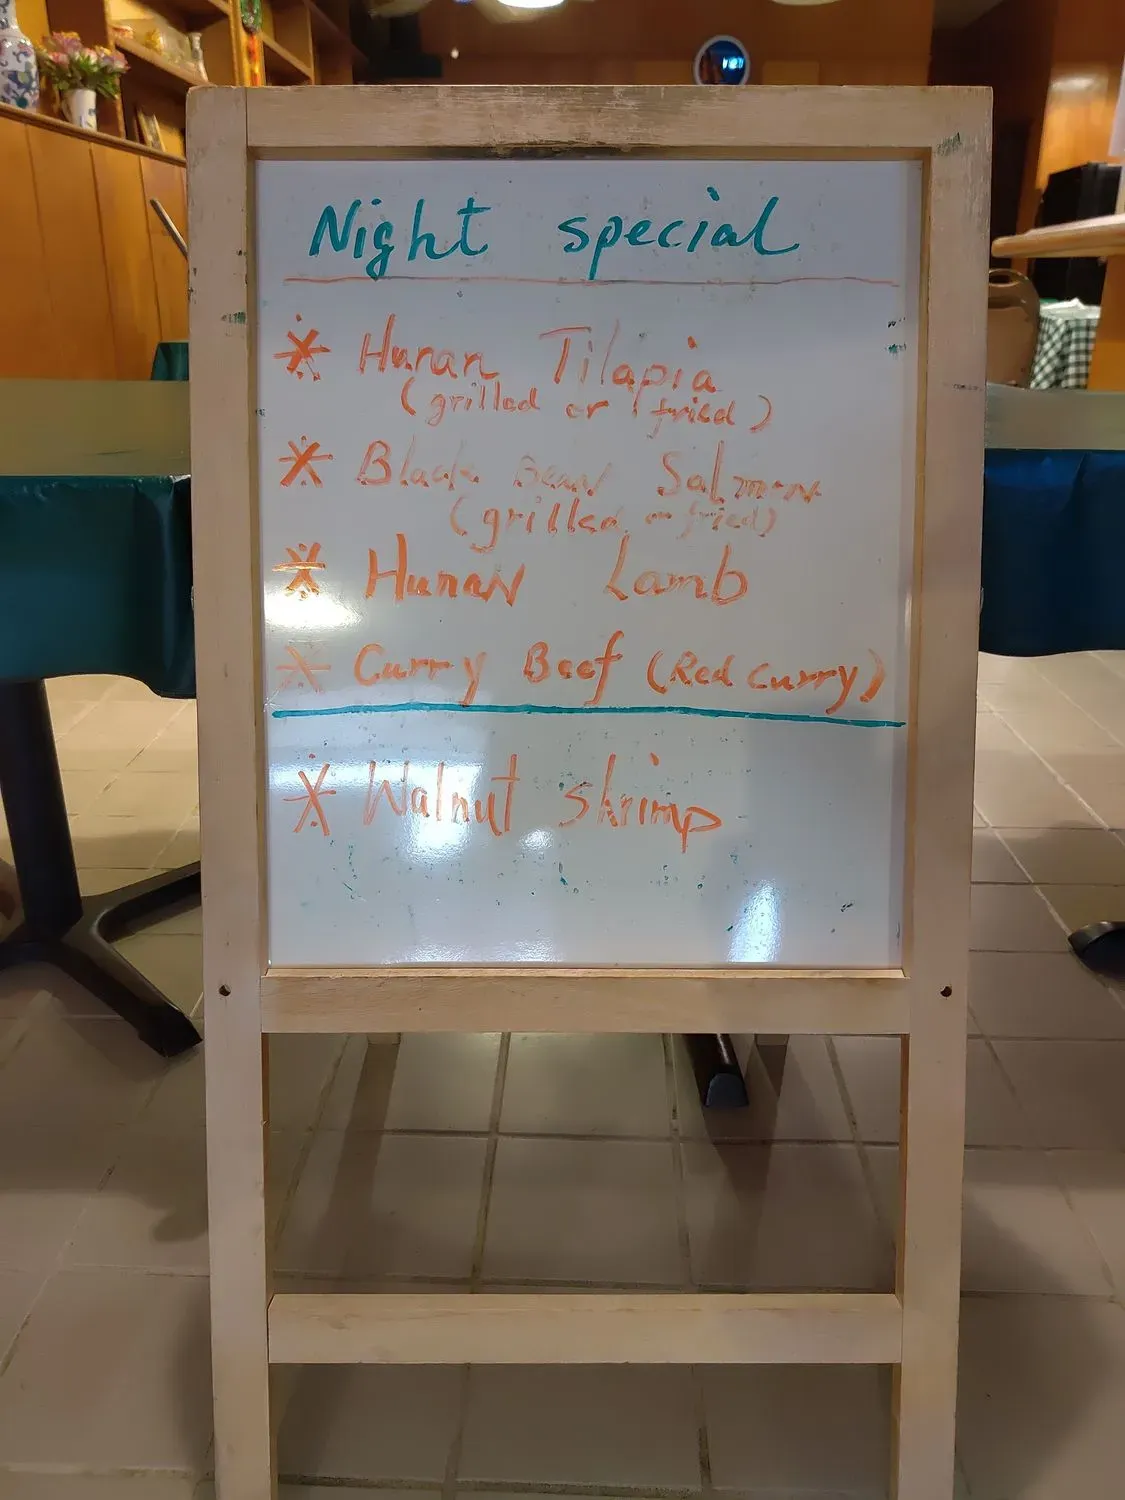 Night special
* Hunan Tilapia
(grilled or fried)
* Black Bean Salmon
(grilled or fried)
* Hunan Lamb
* Curry Beef (Red curry)
* Walnut shrimp